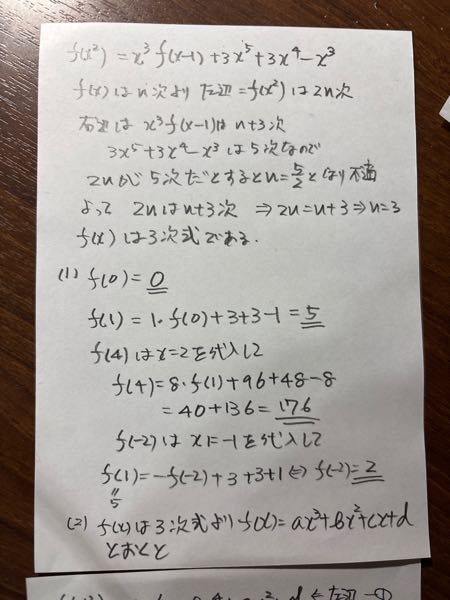 f(x²) = x³f(x-1)+3x⁵+3x⁴-x³
f(x)はn次より 左辺=f(x²)は2n次
右辺は x³f(x-1)は n+3次
3x⁵+3x⁴-x³は5次なので
2nが5次だとするとn=5/2となり不適
よって 2nはn+3次 ⇒2n=n+3⇒n=3
f(x)は3次式である.
(1) f(0)=0
f(1)=1・f(0)+3+3-1=5
f(4)はx=2を代入して
f(4)=8・f(1)+96+48-8
=40+136=176
f(-2)は x=-1を代入して
f(1)=-f(-2)+3+3+1⇔f(-2)=2
5
(2) f(x)は3次式よりf(x)=ax³+bx²+cx+d
とおくと
←左辺-①